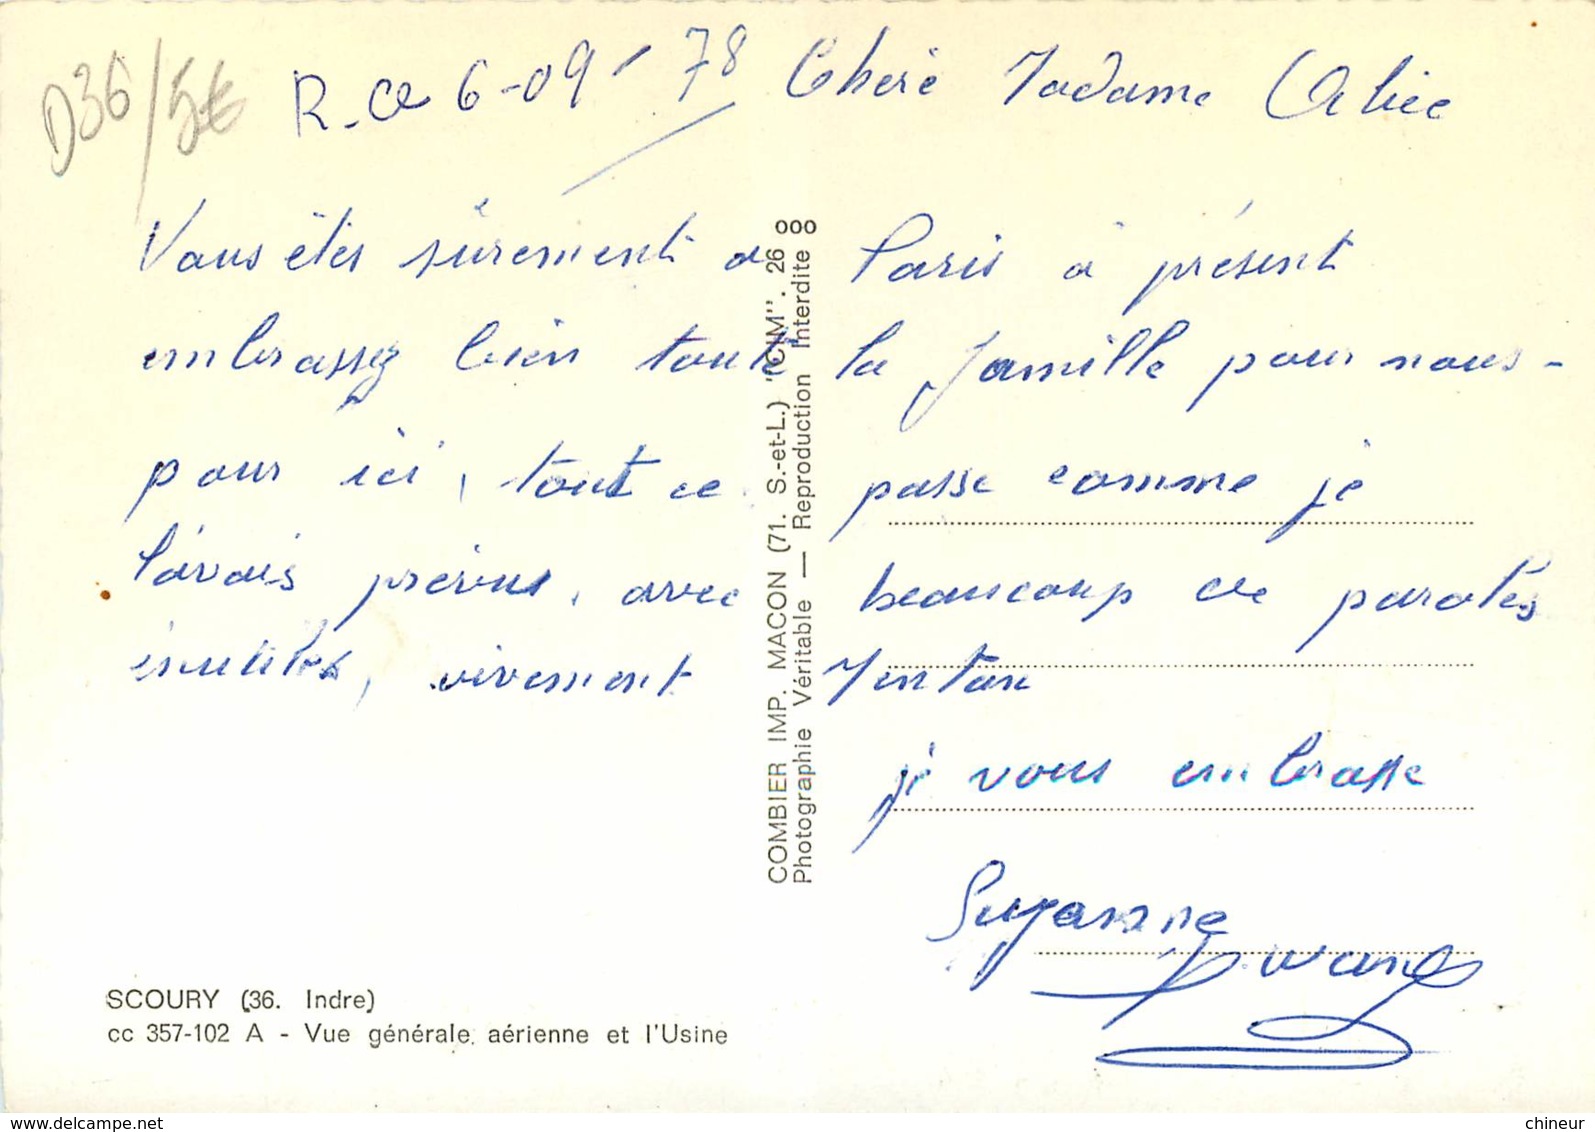 D36/5€
R. ce 6-09-78 Chère Madame
Vous êtes sûrement à Paris à présent
embrassez bien toute la famille pour nous-
pour ici, tout ce passe comme je
l'avais prévus, avec beaucoup de paroles
inutiles, vivement
je vous embrasse
Suzanne
COMBIER IMP. MACON (71. S.-et-L.) "CIM". 26 ooo
Photographie Véritable — Reproduction Interdite
SCOURY (36. Indre)
cc 357-102 A - Vue générale aérienne et l'Usine
delcampe.net
chineur